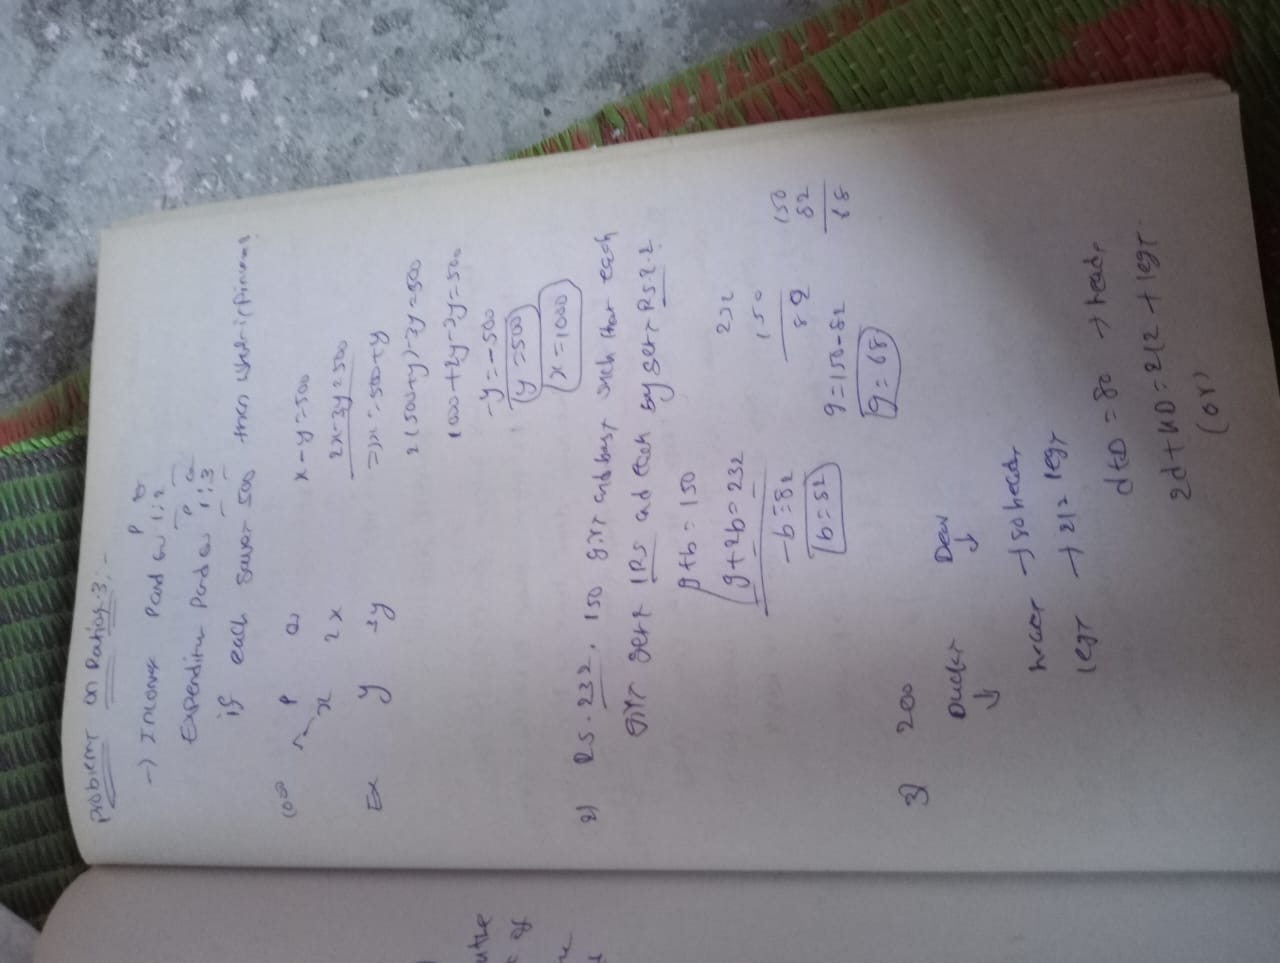 Problems on Ratios-3:-
-> Incomes P and Q 1:2
P Q
Expenditure P and Q 1:3
if each saves 500 then what is
P Q
x 2x
Ex y 3y
x-y=500
2x-3y=500
=> x=500+y
2(500+y)-3y=500
1000+2y-3y=500
-y=-500
y=500
x=1000
2) RS.232, 150 girls and boys such that each
girl gets 1RS and each boy gets RS.2.?
g+b=150
g+2b=232
-b=82
b=82
232
150
82
g=150-82
g=68
150
82
68
3) zoo
Ducks Deer
heads -> 80 heads
legs -> 212 legs
d+D=80 -> heads
2d+4D=212 -> legs
(or)